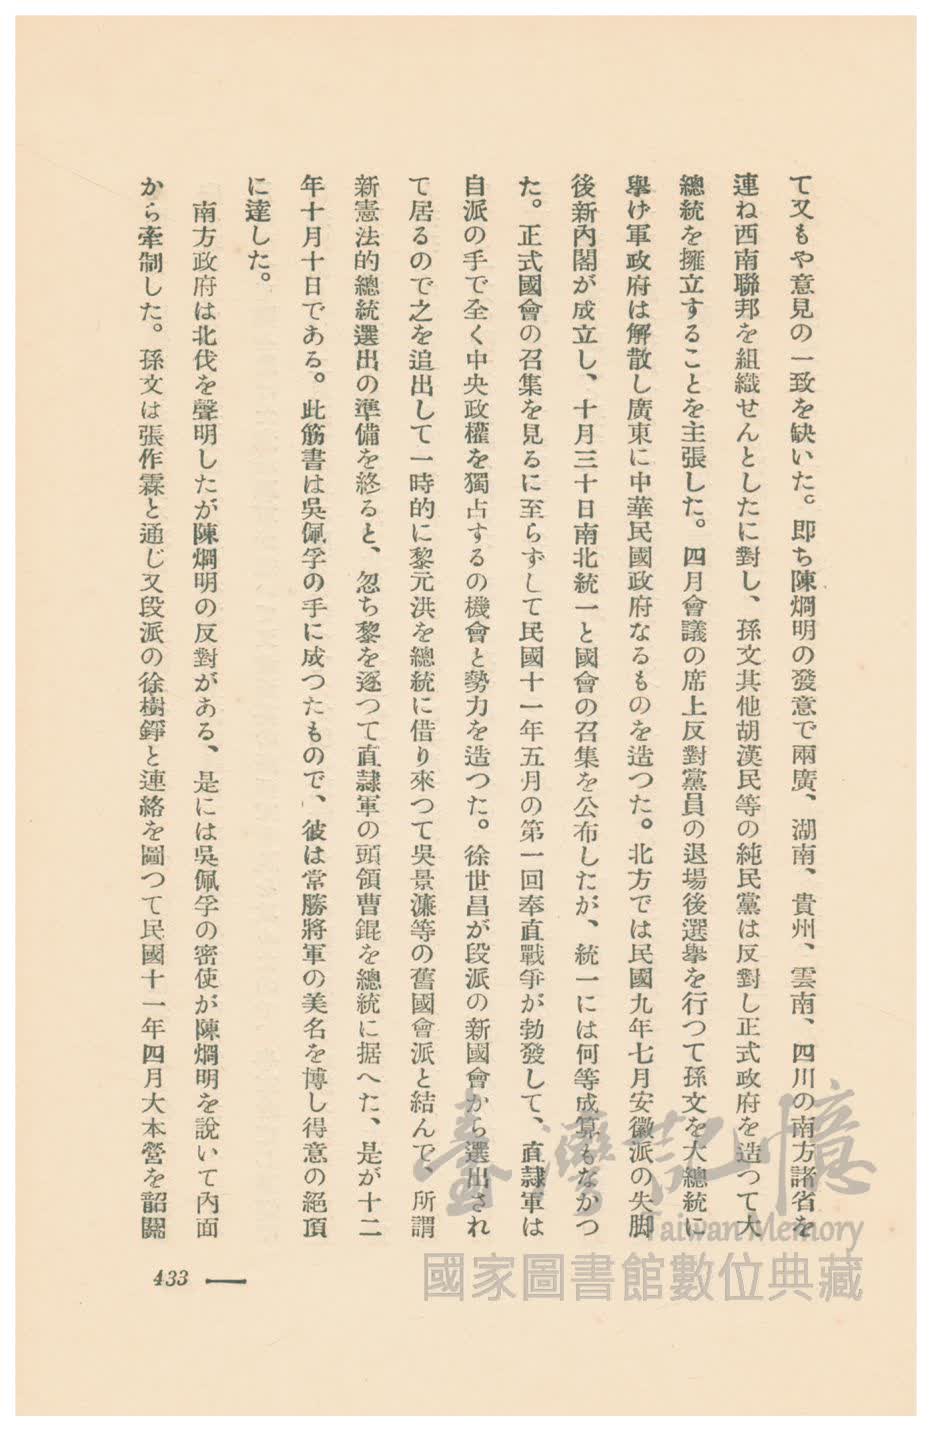 て又もや意見の一致を缺いた。卽ち陳烱明の發意で兩廣、湖南、貴州、雲南、四川の南方諸省を
連ね西南聯邦を組織せんとしたに對し、孫文其他胡漢民等の純民黨は反對し正式政府を造つて大
總統を擁立することを主張した。四月會議の席上反對黨員の退場後選擧を行つて孫文を大總統に
擧げ軍政府は解散し廣東に中華民國政府なるものを造つた。北方では民國九年七月安徽派の失脚
後新內閣が成立し、十月三十日南北統一と國會の召集を公布したが、統一には何等成算もなかつ
た。正式國會の召集を見るに至らずして民國十一年五月の第一回奉直戰爭が勃發して、直隷軍は
自派の手で全く中央政權を獨占するの機會と勢力を造つた。徐世昌が段派の新國會から選出され
て居るので之を追出して一時的に黎元洪を總統に借り來つて吳景濂等の舊國會派と結んで、所謂
新憲法的總統選出の準備を終ると、忽ち黎を逐つて直隷軍の頭領曹錕を總統に据へた、是が十二
年十月十日である。此筋書は吳佩孚の手に成つたもので、彼は常勝將軍の美名を博し得意の絕頂
に達した。
南方政府は北伐を聲明したが陳烱明の反對がある、是には吳佩孚の密使が陳烱明を說いて內面
から牽制した。孫文は張作霖と通じ又段派の徐樹錚と連絡を圖つて民國十一年四月大本營を韶關
433
臺灣記憶
Taiwan Memory
國家圖書館數位典藏